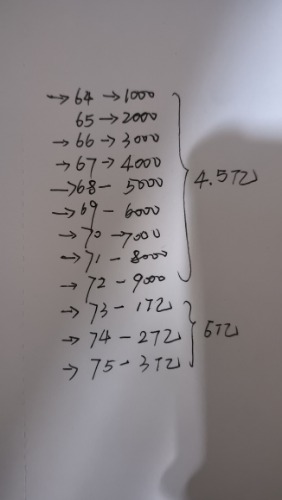 →64 →1000
65 →2000
→66 →3000
→67 →4000
→68 - 5000
→69 - 6000
→70 →7000
→71 - 8000
→72 - 9000
4.5亿
→73 - 1亿
→74 - 2亿
→75 - 3亿
6亿